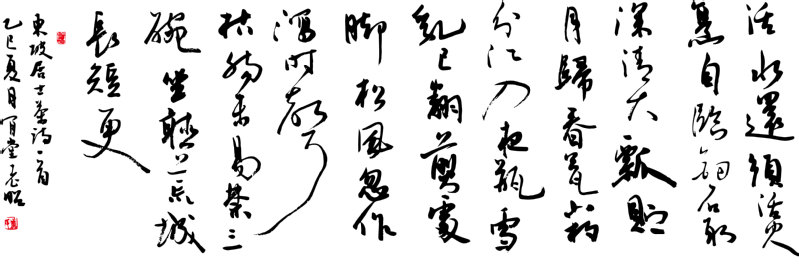 活水還須活火
烹自臨釣石取
深清大瓢貯
月歸春瓮小杓
分江入夜瓶雪
乳已翻煎處
脚松風忽作
瀉時聲
枯腸未易禁三
碗坐聽荒城
長短更
東坡居士茶詩一首
乙巳夏月